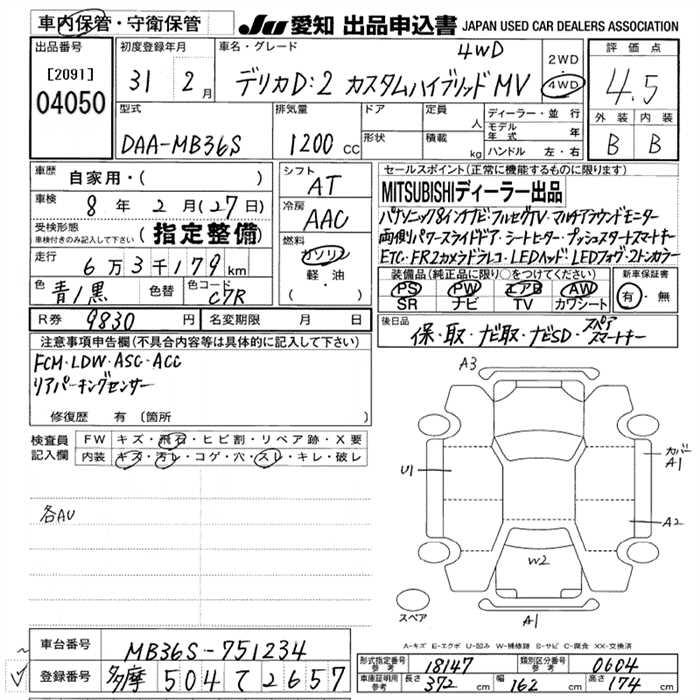 車内保管・守衛保管
JU 愛知 出品申込書 JAPAN USED CAR DEALERS ASSOCIATION
出品番号
[2091]
04050
初度登録年月
31年 2月
車名・グレード
4WD
デリカD:2 カスタムハイブリッドMV
2WD
4WD
評価点
4.5
外装 内装
B B
型式
DAA-MB36S
排気量
1200 cc
ドア
形状
定員 人
積載 kg
ディーラー・並行
モデル年式 年
ハンドル 左・右
車歴
自家用・( )
車検
8年 2月 (27日)
受検形態
車検付きのみ記入して下さい
(指定整備)
走行
6万3千179km
色
青/黒
色替
色コード
C7R
シフト
AT
冷房
AAC
燃料
ガソリン
軽・油
( )
R券 9830円
名変期限 月 日
セールスポイント(正常に機能するものに限ります)
MITSUBISHIディーラー出品
パナソニック8インチナビ・フルセグTV・マルチアラウンドモニター
両側パワースライドドア・シートヒーター・プッシュスタートスマートキー
ETC・FR2カメラドラレコ・LEDヘッド、LEDフォグ・2トンカラー
装備品(純正品に限り○をつけてください)
PS PW エアB AW
SR ナビ TV カワシート
新車保証書
有・無
後日品
保・取・ナビ取・ナビSD・スペアスマートキー
注意事項申告欄(不具合内容等は具体的に記入して下さい)
FCM・LDW・ASC・ACC
リアパーキングセンサー
修復歴 有 〔箇所
検査員記入欄
FW キズ・飛石・ヒビ割・リペア跡・X要
内装 キズ・汚レ・コゲ・穴・スレ・キレ・破レ
各AU
A3
U1
カバーA1
A2
W2
A1
スペア
A-キズ E-エクボ U-凹み W-補修跡 S-サビ C-腐食 XX-交換済
車台番号
MB36S-751234
登録番号
多摩 504 て 2657
型式指定番号 参考
18147
類別区分番号 参考
0604
車庫証明用 参考
長さ 372 cm 幅 162 cm 高さ 174 cm